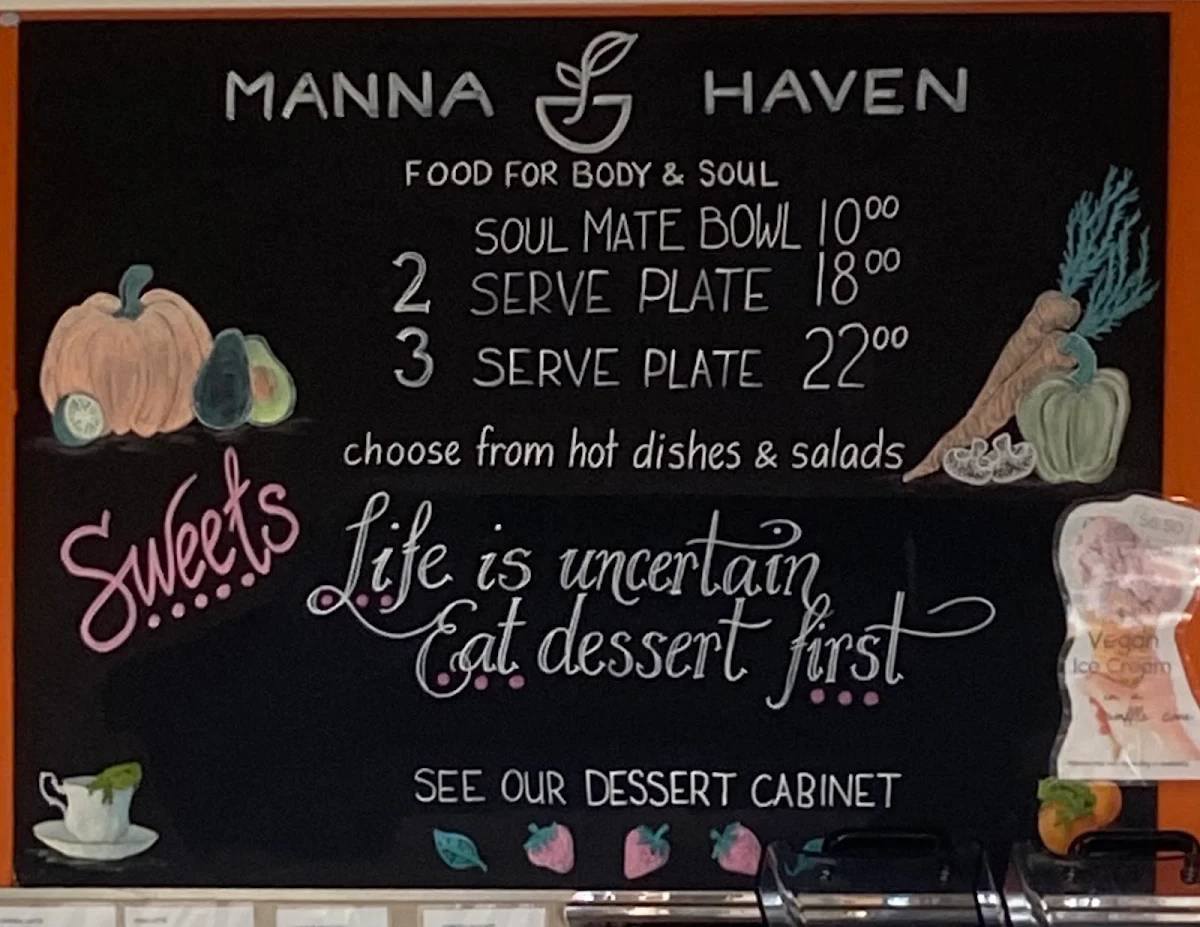 MANNA HAVEN
FOOD FOR BODY & SOUL
SOUL MATE BOWL 10⁰⁰
2 SERVE PLATE 18⁰⁰
3 SERVE PLATE 22⁰⁰
choose from hot dishes & salads
Sweets
Life is uncertain
Eat dessert first
$6.50
Vegan
Ice Cream
in a
waffle cone
SEE OUR DESSERT CABINET